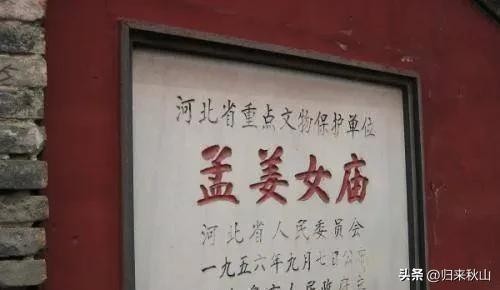 河北省重点文物保护单位
孟姜女庙
河北省人民委员会
一九五六年九月七日公
人民政府立
头条 @归来秋山